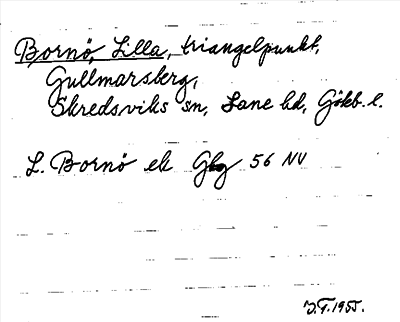 Bornö, Lilla, triangelpunkt,
Gullmarsberg,
Skredsviks sn, Lane hd, Gökb. l.
L. Bornö ek Gbg 56 NV
J.F. 1955.